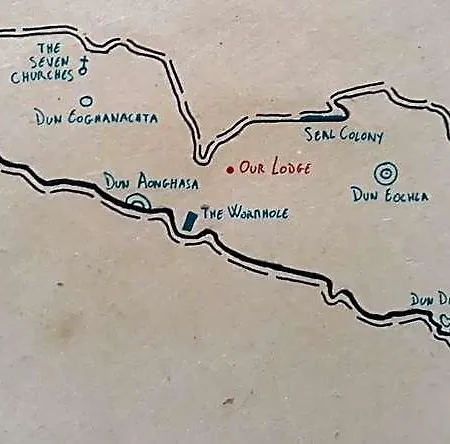 THE
SEVEN
CHURCHES
DUN EOGHANACHTA
SEAL COLONY
OUR LODGE
DUN AONGHASA
DUN EOCHLA
THE WORMHOLE
DUN